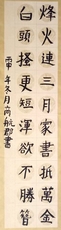 烽火連三月家書抵萬金
白頭搔更短渾欲不勝簪
丙申年冬月